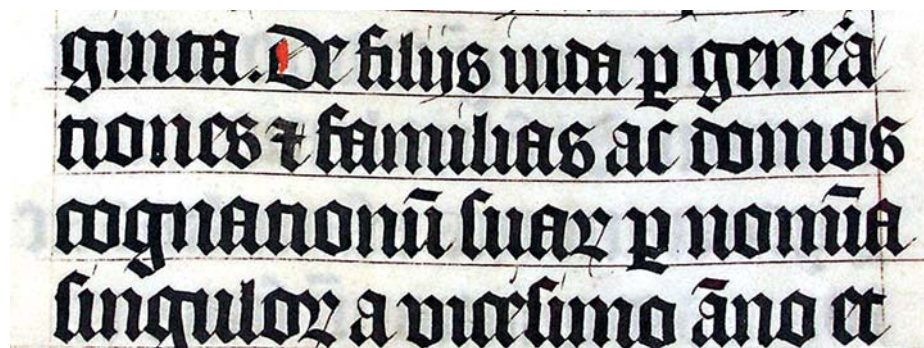 ginta. De filijs iuda ꝑ gene᷑a
tiones ⁊ familias ac domos
cognationū suaꝝ ꝑ nomīa
singuloꝝ a vicesimo āno et